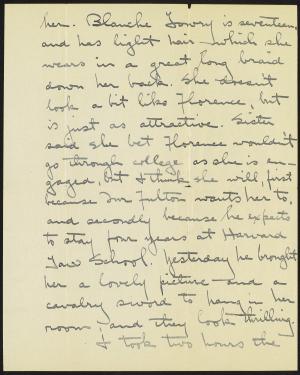 her. Blanche Lowry is seventeen,
and has light hair which she
wears in a great long braid
down her back. She doesn't
look a bit like Florence, but
is just as attractive. Sister
said she bet Florence wouldn't
go through college as she is en-
gaged, but I think she will, first
because Mr Fulton wants her to,
and secondly because he expects
to stay four years at Harvard
Law School. Yesterday he brought
her a lovely picture and a
cavalry sword to hang in her
room, and they look thrilling.
I took two hours the